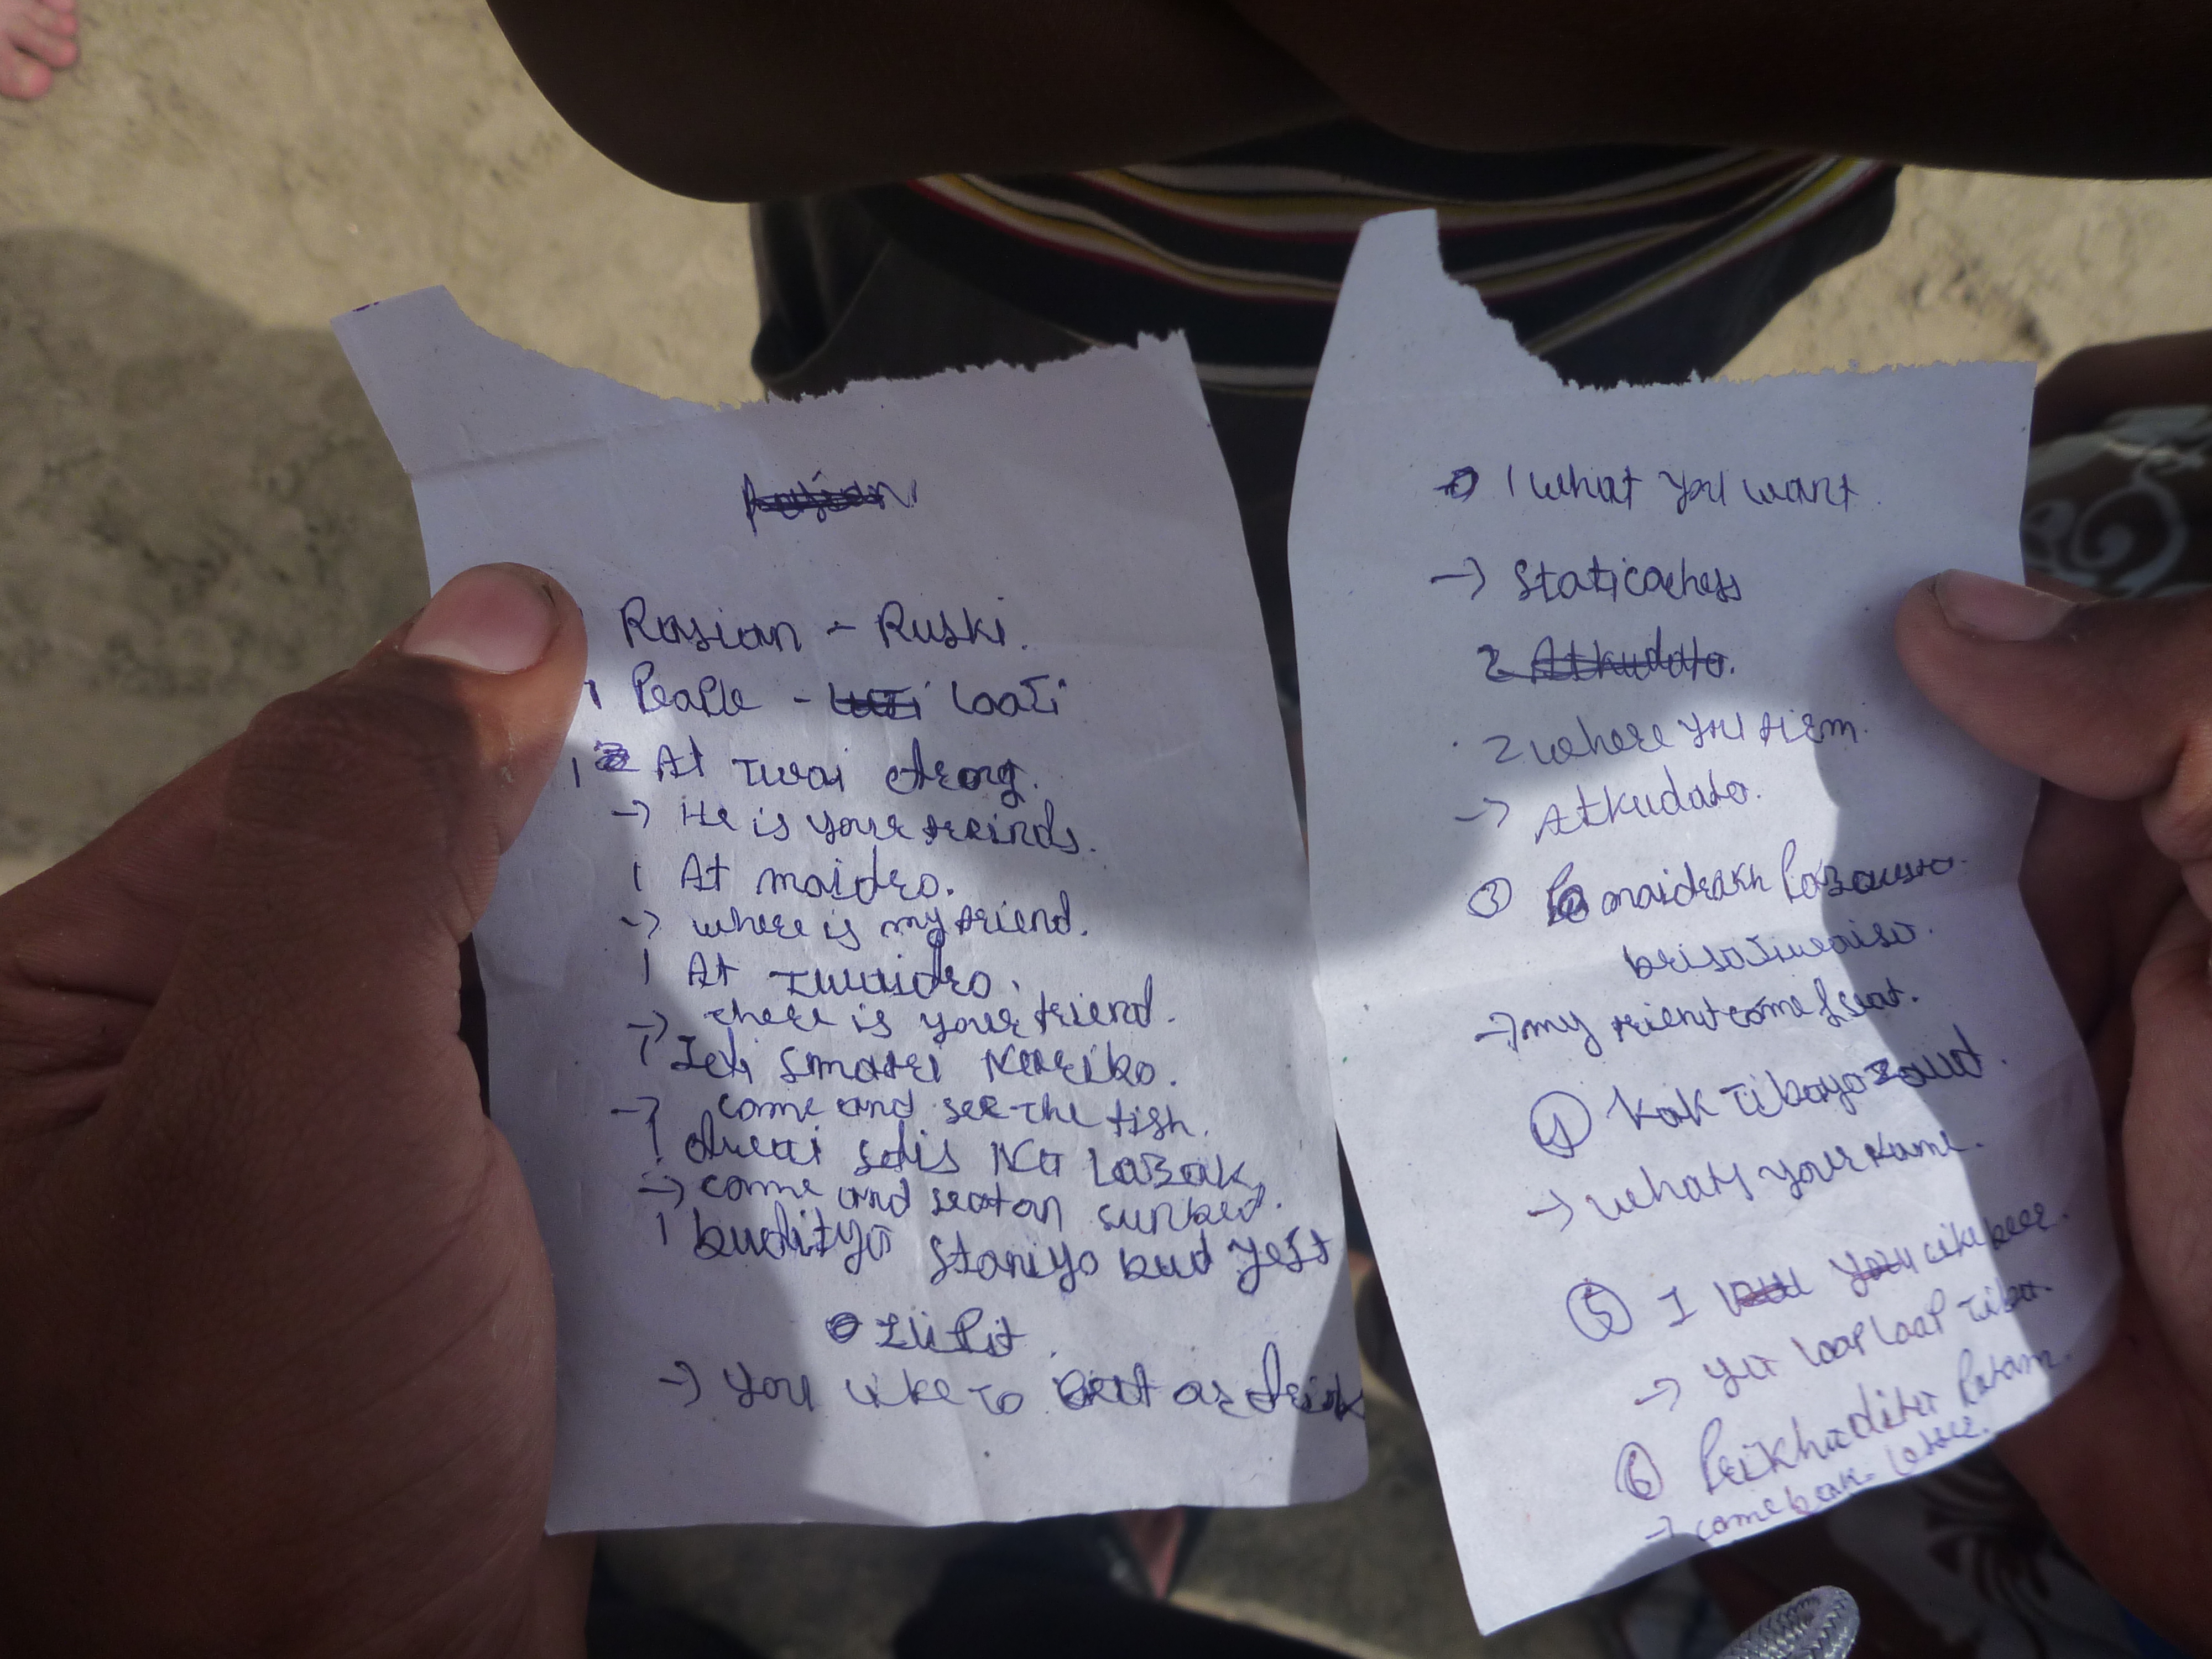 Rasian - Ruski.
1 PeaPle - Laati
1 At Twai drong.
-> He is your freinds.
1 At maidro.
-> where is my friend.
1 At Twaidro.
-> there is your friend.
1 Idi Smatri Kariko.
-> come and see the fish.
1 divai sdis Na LaBak,
-> come and seaton sunbed.
1 budityo staniyo bud yest
ILi Pit
-> you Like To eat as drink
1 what you want.
-> Staticoches
2 Atkudato.
2 where you firm.
-> Atkudato.
3 maidrakh Pa
brisa
-> my frient come & seat.
4 kak Tiba
-> whats your Name.
5 I you Like beer.
-> ya laap laap Tiba.
6 Prikhadite Patam.
-> come beak. Latre.